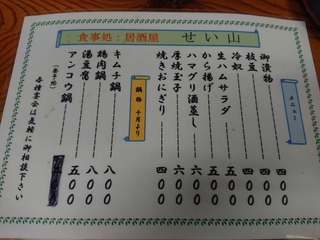 食事処：居酒屋　せい山
メニュー
御漬物 四〇〇
枝豆 四〇〇
冷奴 四〇〇
生ハムサラダ 八〇〇
から揚げ 五〇〇
ハマグリ酒蒸し 六〇〇
厚焼玉子 六〇〇
焼きおにぎり 四〇〇
鍋物 十月より
キムチ鍋 八〇〇
鶏肉鍋 八〇〇
湯豆腐 五〇〇
アンコウ鍋
(要予約)
各種宴会は気軽に御相談下さい